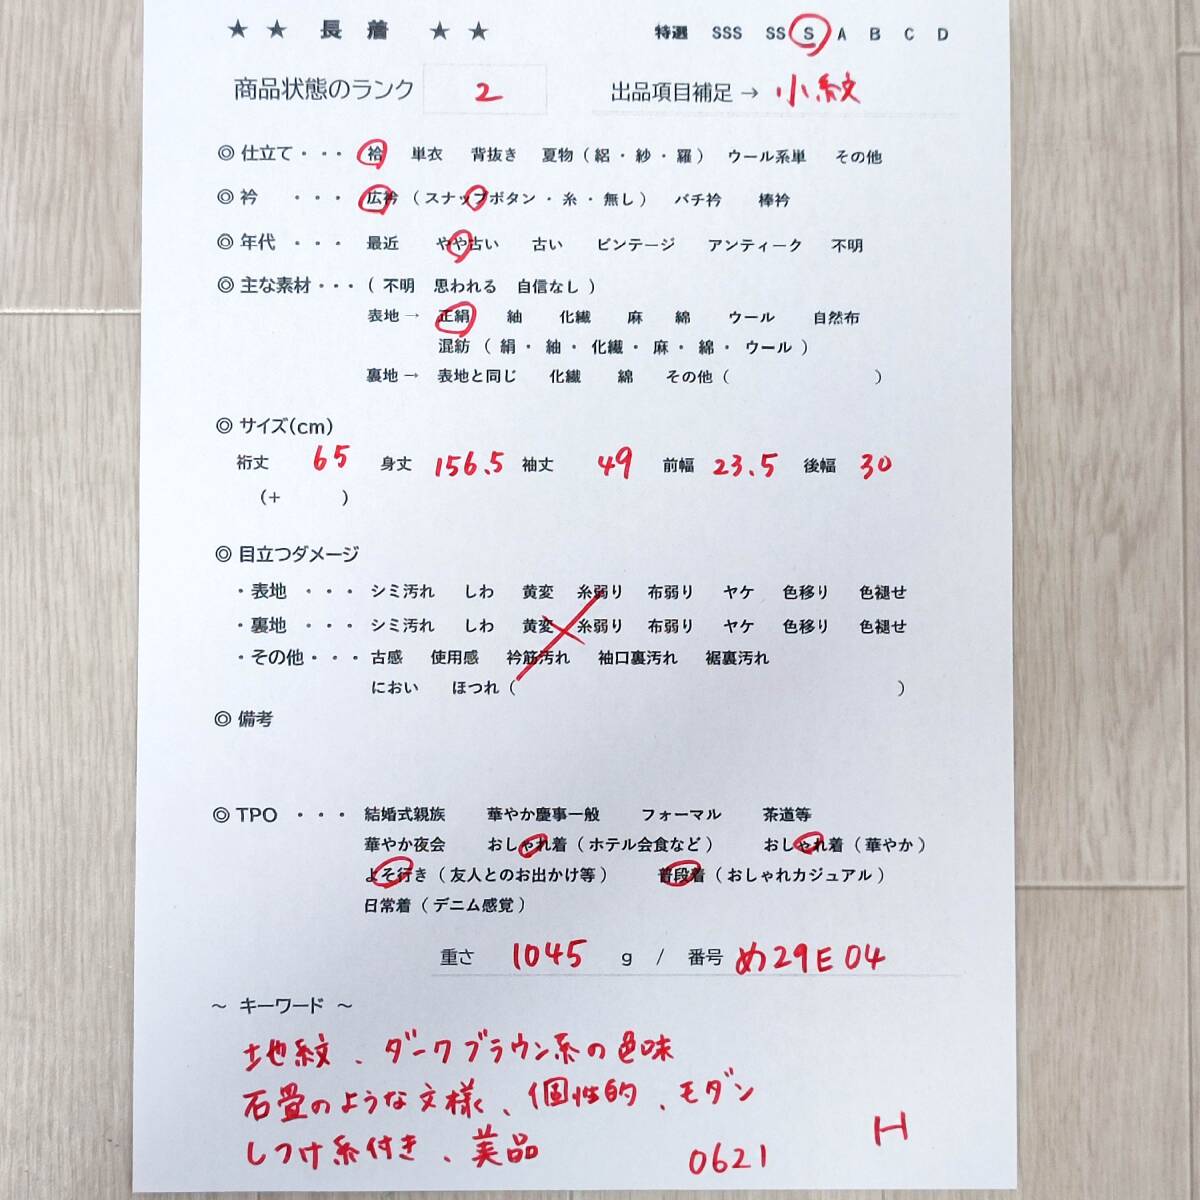 ★ ★ 長 着 ★ ★ 特選 SSS SS S A B C D
商品状態のランク 2 出品項目補足 → 小紋
◎ 仕立て・・・ 袷 単衣 背抜き 夏物（ 絽 ・ 紗 ・ 羅 ） ウール系単 その他
◎ 衿 ・・・ 広衿 （ スナップボタン ・ 糸 ・ 無し ） バチ衿 棒衿
◎ 年代 ・・・ 最近 やや古い 古い ビンテージ アンティーク 不明
◎ 主な素材・・・ （ 不明 思われる 自信なし ）
表地 → 正絹 紬 化繊 麻 綿 ウール 自然布
混紡 （ 絹 ・ 紬 ・ 化繊 ・ 麻 ・ 綿 ・ ウール ）
裏地 → 表地と同じ 化繊 綿 その他（ ）
◎ サイズ(cm)
裄丈 65 身丈 156.5 袖丈 49 前幅 23.5 後幅 30
（+ ）
◎ 目立つダメージ
・表地 ・・・ シミ汚れ しわ 黄変 糸弱り 布弱り ヤケ 色移り 色褪せ
・裏地 ・・・ シミ汚れ しわ 黄変 糸弱り 布弱り ヤケ 色移り 色褪せ
・その他・・・ 古感 使用感 衿筋汚れ 袖口裏汚れ 裾裏汚れ
におい ほつれ（ ）
◎ 備考
◎ TPO ・・・ 結婚式親族 華やか慶事一般 フォーマル 茶道等
華やか夜会 おしゃれ着（ ホテル会食など ） おしゃれ着（ 華やか ）
よそ行き（ 友人とのお出かけ等 ） 普段着（ おしゃれカジュアル ）
日常着（ デニム感覚 ）
重さ 1045 g / 番号 め29E04
～ キーワード ～
地紋、ダークブラウン系の色味
石畳のような文様、個性的、モダン
しつけ糸付き、美品 0621 H